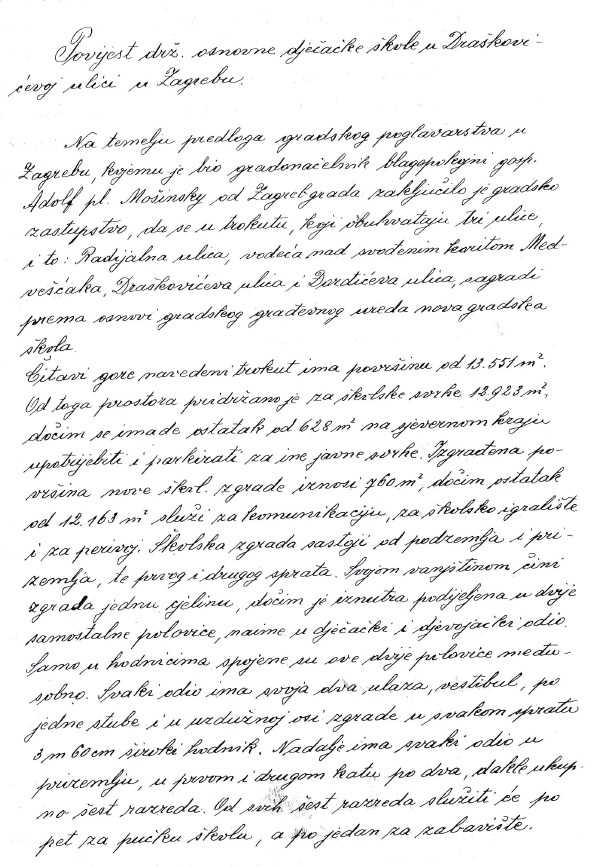 Povijest drž. osnovne dječačke škole u Draškovi-
ćevoj ulici u Zagrebu.
Na temelju predloga gradskog poglavarstva u
Zagrebu, kojemu je bio gradonačelnik blagopokojni gosp.
Adolf pl. Mošinsky od Zagrebgrada zaključilo je gradsko
zastupstvo, da se u trokutu, koji obuhvataju tri ulice,
i to: Radijalna ulica, vodeća nad svođenim koritom Med-
veščaka, Draškovićeva ulica i Đorđićeva ulica, sagradi
prema osnovi gradskog građevnog ureda nova gradska
škola.
Čitavi gore navedeni trokut ima površinu od 13.551 m².
Od toga prostora pridržano je za školske svrhe 12.923 m²,
dočim se imade ostatak od 628 m² na sjevernom kraju
upotrijebiti i parkirati za ine javne svrhe. Izgrađena po-
vršina nove škol. zgrade iznosi 760 m², dočim ostatak
od 12.163 m² služi za komunikaciju, za školsko igralište
i za perivoj. Školska zgrada sastoji od podzemlja i pri-
zemlja, te prvog i drugog sprata. Svojom vanjštinom čini
zgrada jednu cjelinu, dočim je iznutra podijeljena u dvije
samostalne polovice, naime u dječački i djevojački odio.
Samo u hodnicima spojene su ove dvije polovice među-
sobno. Svaki odio ima svoja dva ulaza, vestibul, po
jedne stube i u uzdužnoj osi zgrade u svakom spratu
3 m 60 cm široki hodnik. Nadalje ima svaki odio u
prizemlju, u prvom i drugom katu po dva, dakle ukup-
no šest razreda. Od svih šest razreda služiti će po
pet za pučku školu, a po jedan za zabavište.